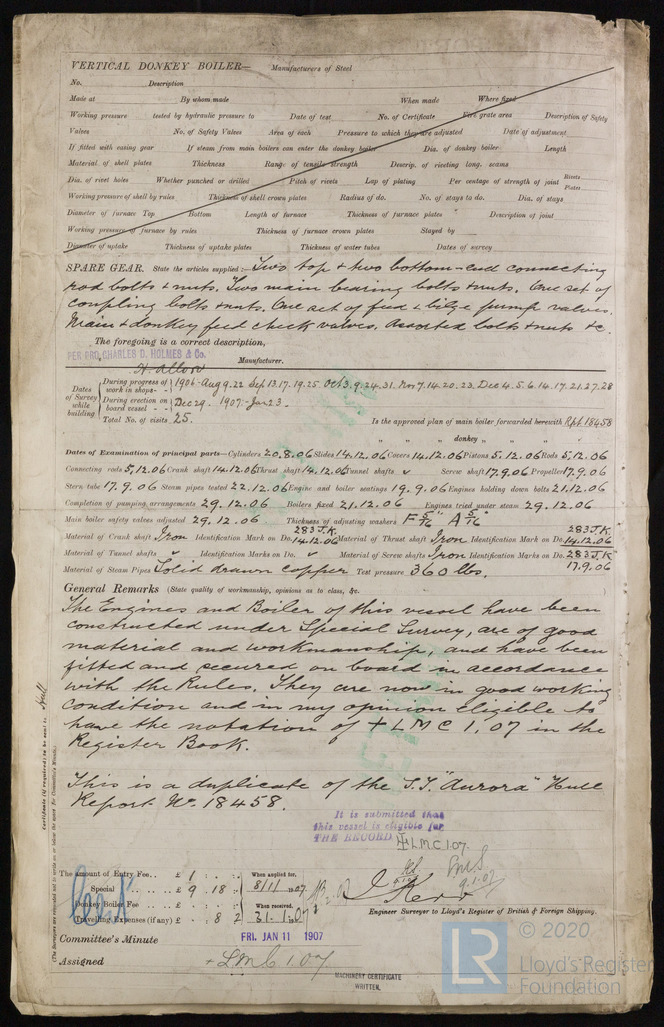 VERTICAL DONKEY BOILER— Manufacturers of Steel
No. Description
Made at By whom made When made Where fixed
Working pressure tested by hydraulic pressure to Date of test No. of Certificate Fire grate area Description of Safety
Valves No. of Safety Valves Area of each Pressure to which they are adjusted Date of adjustment
If fitted with easing gear If steam from main boilers can enter the donkey boiler Dia. of donkey boiler Length
Material of shell plates Thickness Range of tensile strength Descrip. of riveting long. seams
Dia. of rivet holes Whether punched or drilled Pitch of rivets Lap of plating Per centage of strength of joint Rivets Plates
Working pressure of shell by rules Thickness of shell crown plates Radius of do. No. of stays to do. Dia. of stays
Diameter of furnace Top Bottom Length of furnace Thickness of furnace plates Description of joint
Working pressure of furnace by rules Thickness of furnace crown plates Stayed by
Diameter of uptake Thickness of uptake plates Thickness of water tubes Dates of survey
SPARE GEAR. State the articles supplied:— Two top & two bottom-end connecting
rod bolts & nuts. Two main bearing bolts & nuts. One set of
coupling bolts & nuts. One set of feed & bilge pump valves.
Main & donkey feed check valves. Assorted bolts & nuts &c.
The foregoing is a correct description,
PER PRO. CHARLES D. HOLMES & Co. Manufacturer.
Dates of Survey while building
During progress of work in shops - - 1906 - Aug 9. 22 Sep 13. 17. 19. 25 Oct 3. 9. 24. 31 Nov 7. 14. 20. 23. Dec 4. 5. 6. 14. 17. 21. 27. 28
During erection on board vessel - - Dec 29. 1907:- Jan 23
Total No. of visits 25. Is the approved plan of main boiler forwarded herewith Rpt. 18458
" " donkey " " "
Dates of Examination of principal parts—Cylinders 20.8.06 Slides 14.12.06 Covers 14.12.06 Pistons 5.12.06 Rods 5.12.06
Connecting rods 5.12.06 Crank shaft 14.12.06 Thrust shaft 14.12.06 Tunnel shafts ✓ Screw shaft 17.9.06 Propeller 17.9.06
Stern tube 17.9.06 Steam pipes tested 22.12.06 Engine and boiler seatings 19.9.06 Engines holding down bolts 21.12.06
Completion of pumping arrangements 29.12.06 Boilers fixed 21.12.06 Engines tried under steam 29.12.06
Main boiler safety valves adjusted 29.12.06 Thickness of adjusting washers F 5/16" A 5/16"
Material of Crank shaft Iron Identification Mark on Do. 283 J.K. 14.12.06 Material of Thrust shaft Iron Identification Mark on Do. 283 J.K. 14.12.06
Material of Tunnel shafts ✓ Identification Marks on Do. ✓ Material of Screw shafts Iron Identification Marks on Do. 283 J.K. 17.9.06
Material of Steam Pipes Solid drawn copper Test pressure 360 lbs.
General Remarks (State quality of workmanship, opinions as to class, &c.
The Engines and Boiler of this vessel have been
constructed under Special Survey, are of good
material and workmanship, and have been
fitted and secured on board in accordance
with the Rules. They are now in good working
condition and in my opinion eligible to
have the notation of + LMC 1,07 in the
Register Book.
This is a duplicate of the S.S. "Aurora" Hull
Report. No. 18458.
It is submitted that
this vessel is eligible for
THE RECORD + LMC 1.07.
The amount of Entry Fee .. £ 1 : : When applied for,
Special .. .. £ 9 . 18 : 8/1/1907
Donkey Boiler Fee .. £ : : When received,
Travelling Expenses (if any) £ : 8 2 31.1.07
Engineer Surveyor to Lloyd's Register of British & Foreign Shipping.
Committee's Minute FRI. JAN 11 1907
Assigned + LMC 1.07
MACHINERY CERTIFICATE
WRITTEN.
Certificate (if required) to be sent to Hull
(The Surveyors are requested not to write on or below the space for Committee's Minute.)
© 2020
LR
Lloyd's Register
Foundation